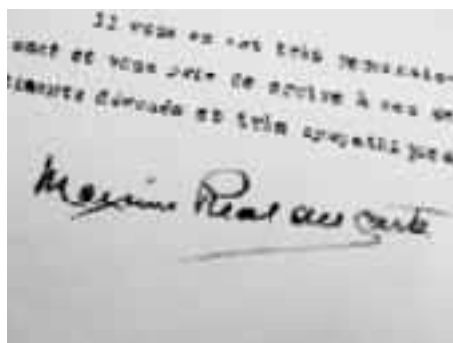 Il vous en est très reconnais
sant et vous prie de croire à ses se
timents dévoués et très sympathiques
Maxime Real del Sarte